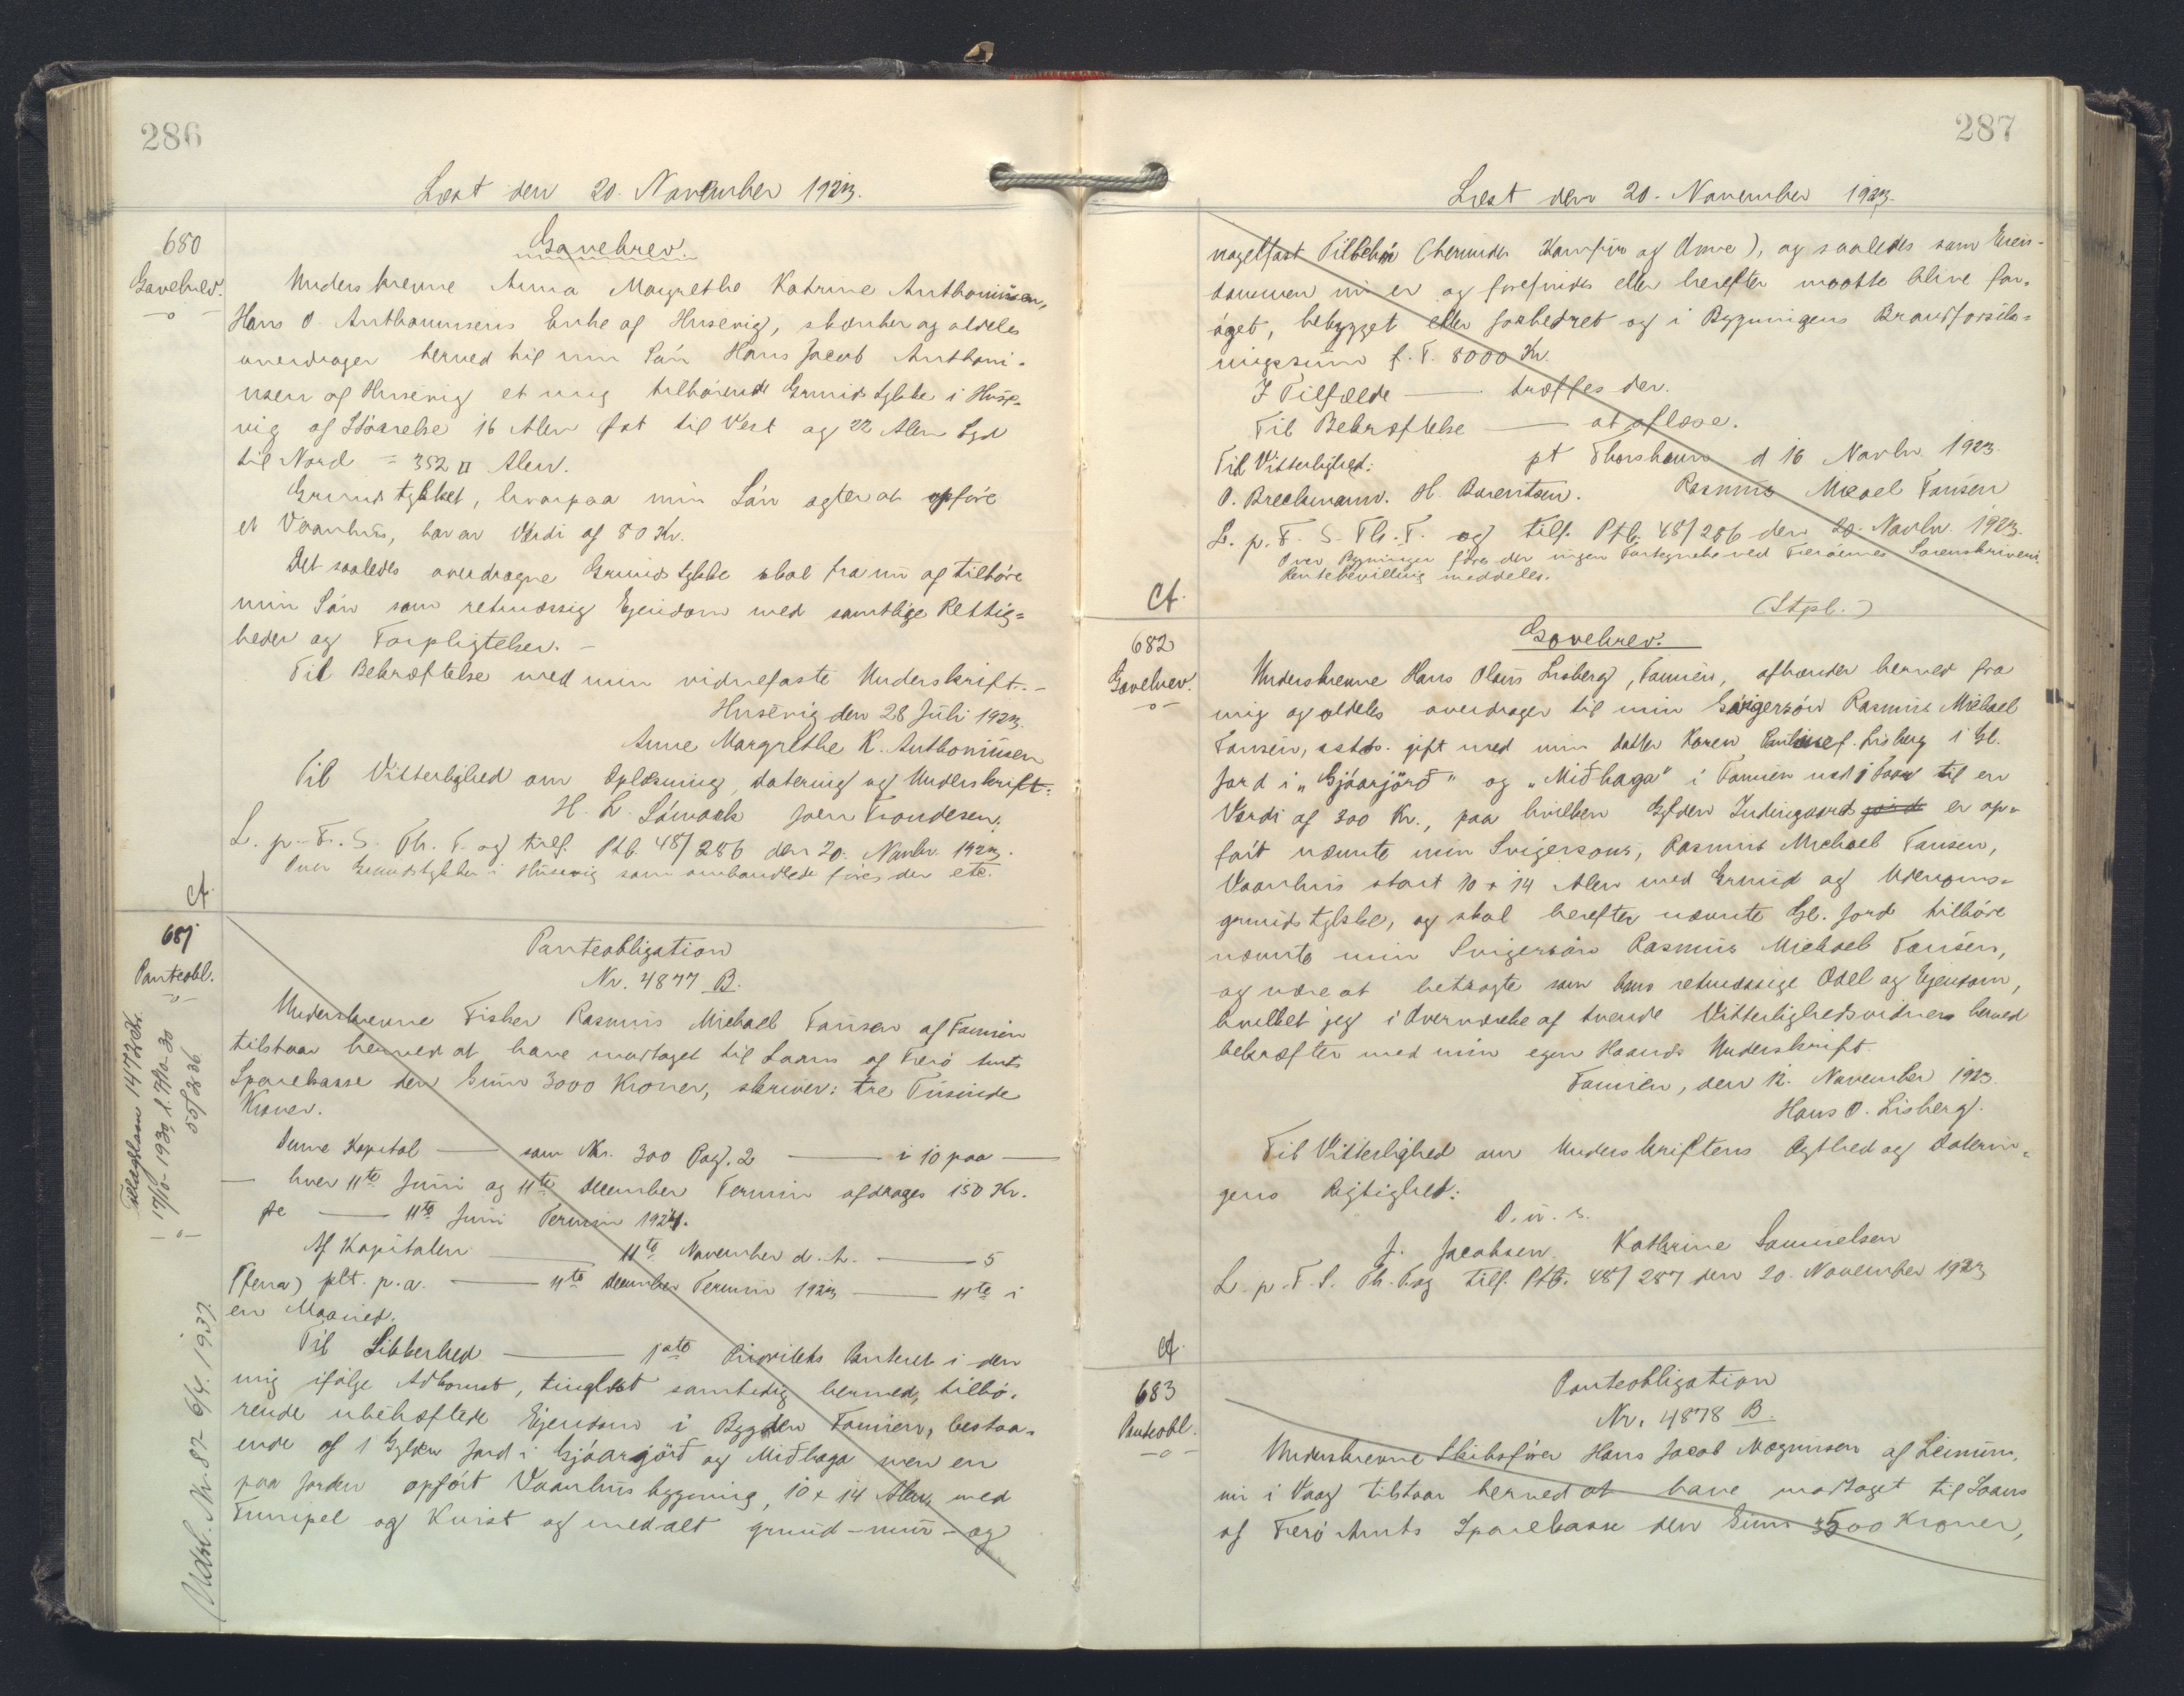 286
Læst den 20. November 1923.
680
Gavebrev.
Gavebrev.
Underskrevne Anna Margrethe Katrine Anthoniusen,
Hans O. Anthoniusens Enke af Husevig, skænker og aldeles
overdrager herved til min Sön Hans Jacob Anthoni-
usen af Husevig et mig tilhörende Grundstykke i Huse-
vig af Störrelse 16 Alen Öst til Vest og 22 Alen Syd
til Nord = 352 □ Alen.
Grundstykket, hvorpaa min Sön agter at opföre
et Vaanhus, har en Værdi af 80 Kr.
Det saaledes overdragne Grundstykke skal fra nu af tilhöre
min Sön som retmæssig Ejendom med samtlige Rettig-
heder og Forpligtelser. -
Til Bekræftelse med min vidnefaste Underskrift. -
Husevig den 28 Juli 1923.
Anne Margrethe K. Anthoniusen
Til Vitterlighed om Oplæsning, Datering og Underskrift:
H. L. Sámark Joen Trondesen.
L. p. F. S. Th. T. og tilf. Ptb. 48/286 den 20. Novbr. 1923.
Over Grundstykker i Husevig som omhandlede föres der etc.
Cf.
681
Panteobl.
Panteobligation
Nr. 4877 B.
Underskrevne Fisker Rasmus Michael Fausen af Famien
tilstaar herved at have modtaget til Laans af Færö Amts
Sparekasse den Sum 3000 Kroner, skriver: tre Tusinde
Kroner.
Denne Kapital — som Nr. 300 Pag. 2 — i 10 paa —
— hver 11te Juni og 11te December Termin afdrages 150 Kr.
pe — 11te Juni Termin 1924.
Af Kapitalen — 11te November d. A. — 5
(fem) pCt. p. a. — 11te December Termin 1923 — 11te i
en Maaned.
Til Sikkerhed — 1ste Prioritets Panteret i den
mig ifölge Adkomst, tinglæst samtidig hermed, tilhö-
rende ubehæftede Ejendom i Bygden Famien, bestaa-
ende af 1 Gylden Jord i Gjóarjörð og Miðhaga men en
paa Jorden opfört Vaanhusbygning, 10 x 14 Alen, med
Funipel og Kvist og med alt grund - mur - og
17/10-1930, 1. 17/10-30
55/2836
Udsl. Nr. 87 6/4. 1937.
287
Læst den 20. November 1923.
nagelfast Tilbehör (herunder Komfur og Ovne), og saaledes som Ejen-
dommen nu er og forefindes eller herefter maatte blive for-
öget, bebygget eller forbedret og i Bygningens Brandforsik-
ringssum f. T. 8000 Kr.
I Tilfælde — træffes der.
Til Bekræftelse — at aflæse.
pt Thorshavn d 16 Novbr. 1923.
Til Vitterlighed:
Rasmus Micael Fausen
O. Breckmann. H. Barentsen.
L. p. F. S. Th. T. og tilf. Ptb. 48/286 den 20. Novbr. 1923.
Over Bygninger föres der ingen Fortegnelse ved Færöernes Sorenskriveri.
Rentebevilling meddeles.
(Stpl.)
Cf.
682
Gavebrev.
Gavebrev.
Underskrevne Hans Olaus Lisberg, Famien, afhænder herved fra
mig og aldeles overdrager til min Svigersön Rasmus Michael
Fausen, sstds. gift med min Datter Karen f. Lisberg 1 Gl.
Jord i „Gjóarjörð" og „Miðhaga" i Famien til en
Værdi af 300 Kr., paa hvilken Gylden Indingaard er op-
fört nævnte min Svigersöns, Rasmus Michael Fausen,
Vaanhus stort 10 x 14 Alen med Grund og Udenoms-
grundstykke, og skal herefter nævnte Gl. Jord tilhöre
nævnte min Svigersön Rasmus Michael Fausen,
og være at betragte som hans retmæssige Odel og Ejendom,
hvilket jeg i Overværelse af tvende Vitterlighedsvidner herved
bekræfter med min egen Haands Underskrift.
Famien, den 12. November 1923.
Hans O. Lisberg.
Til Vitterlighed om Underskriftens Ægthed og Daterin-
gens Rigtighed:
D. u. s.
J. Jacobsen. Kathrine Samuelsen
L. p. F. S. Th. T. og tilf. Ptb. 48/287 den 20. November 1923
Cf.
683
Panteobl.
Panteobligation
Nr. 4878 B.
Underskrevne Skibsförer Hans Jacob Magnussen af Leinum,
nu i Vaag tilstaar herved at have modtaget til Laans
af Færö Amts Sparekasse den Sum 3500 Kroner,